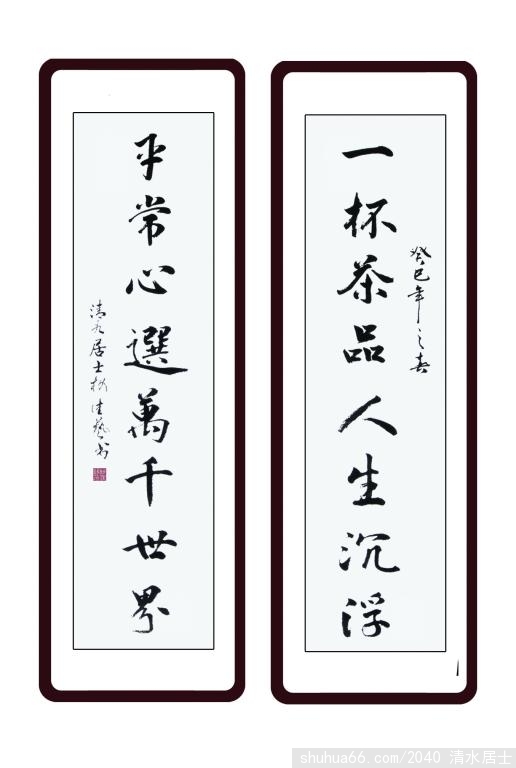 癸巳年之春
一杯茶品人生沉浮
平常心選萬千世界
清水居士於佳藝书
shuhua66.com/2040 清水居士